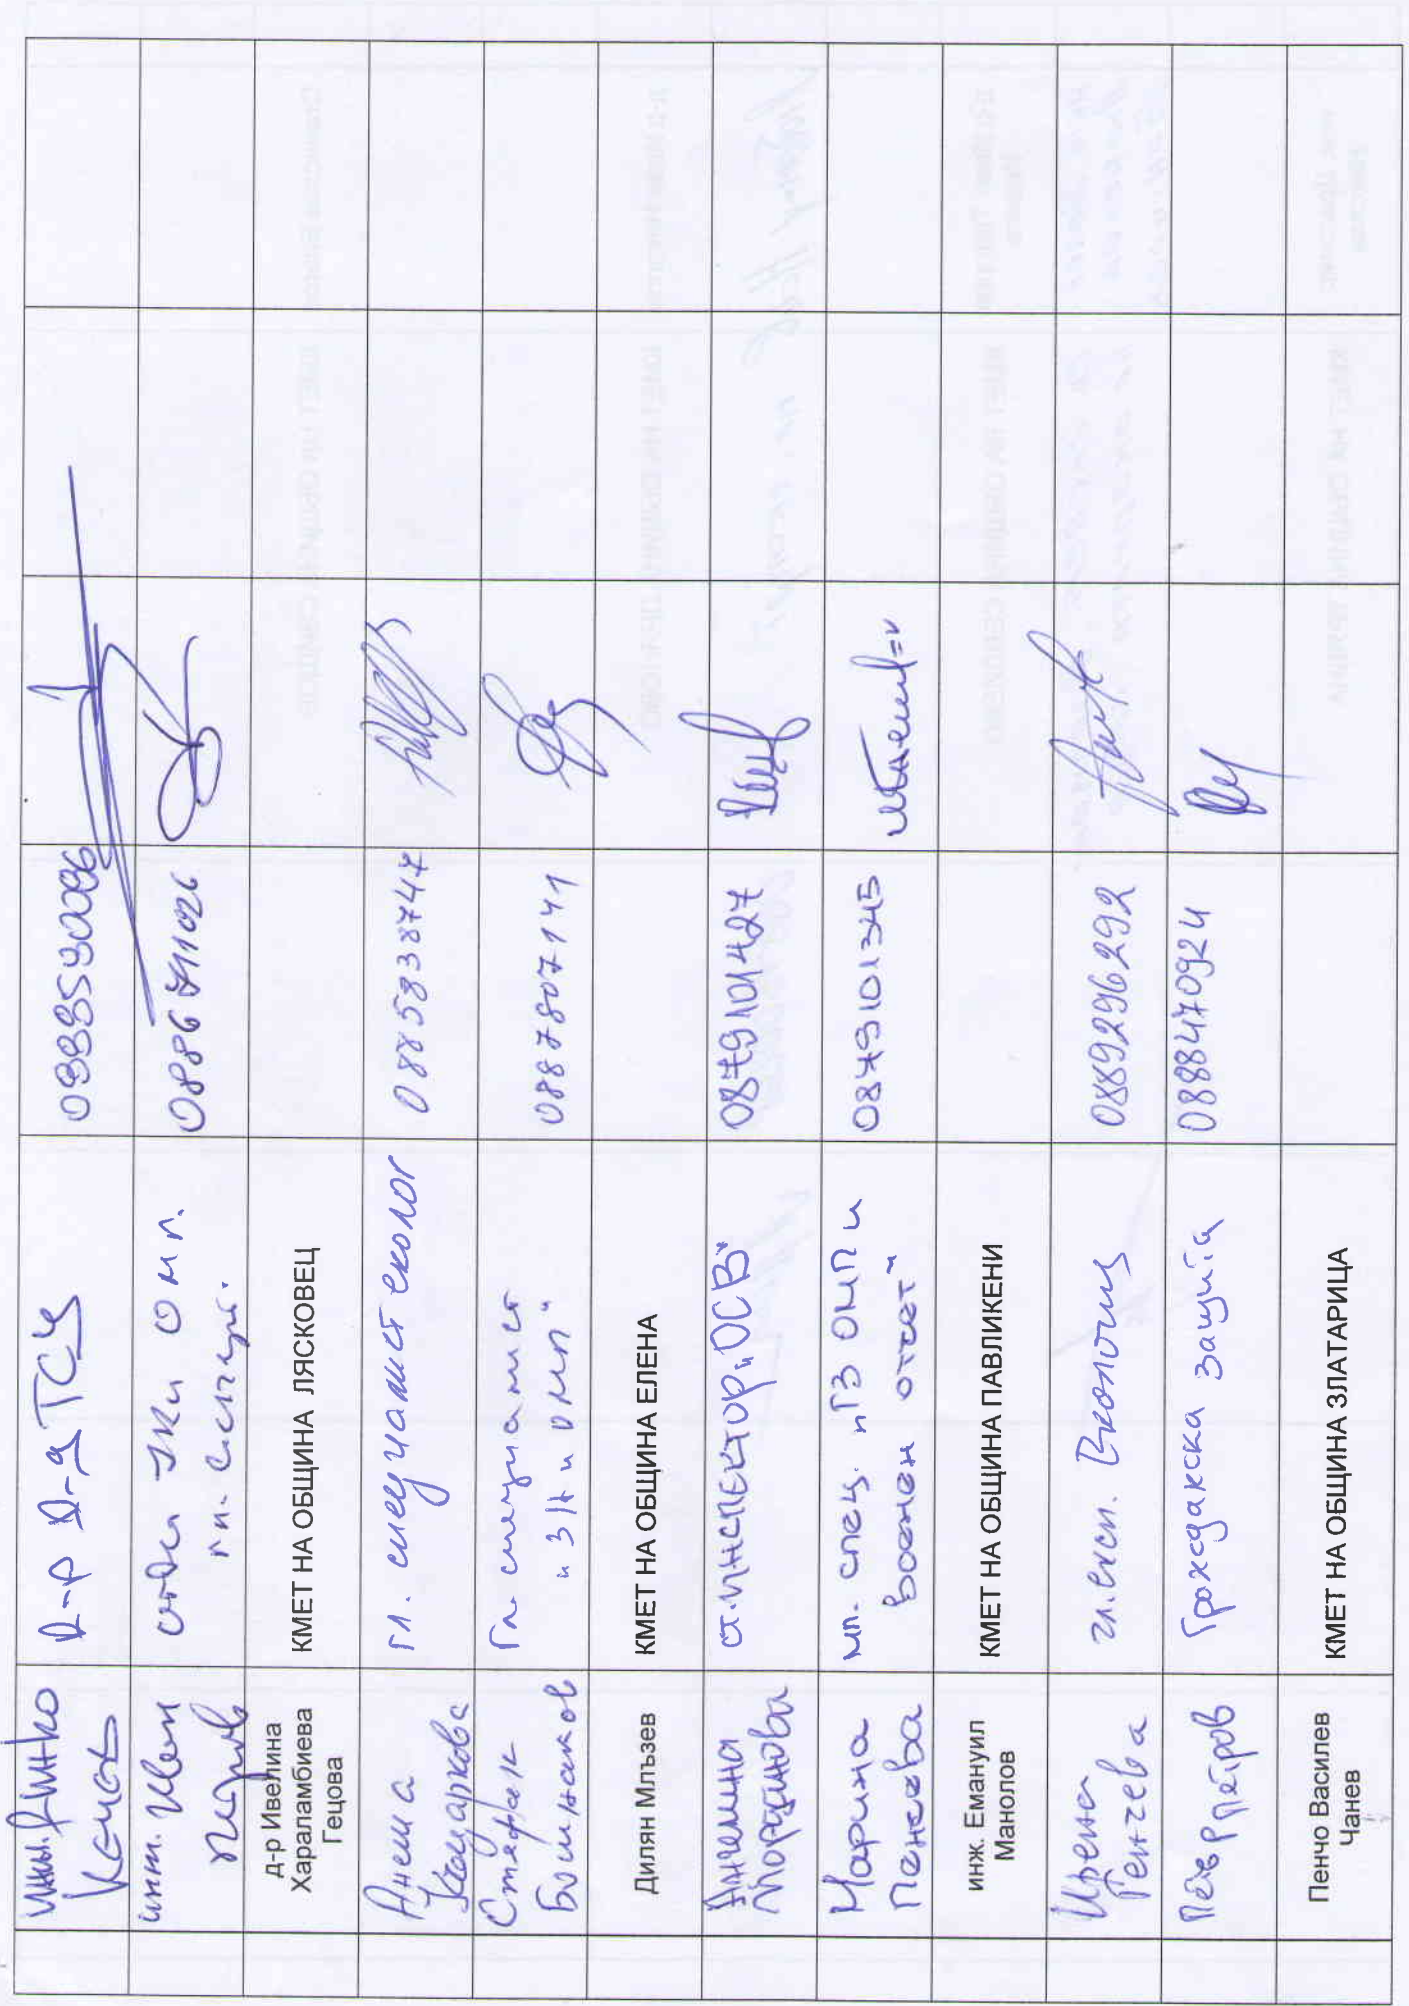 инж. Динко
Кечев
Д-р Д-я ТСУ
инж. Иван
0886 711026
д-р Ивелина
Хараламбиева
Гецова
КМЕТ НА ОБЩИНА ЛЯСКОВЕЦ
Анета
гл. специалист еколог
0885838747
Стефан
Гл. специалист
„ЗН и ОМП"
0887807141
Дилян Млъзев
КМЕТ НА ОБЩИНА ЕЛЕНА
Ангелина
Йорданова
ст. инспектор „ОСВ"
0879101427
Марина
Пенева
мл. спец. „ГЗ ОМП и
военен отчет"
0879101345
инж. Емануил
Манолов
КМЕТ НА ОБЩИНА ПАВЛИКЕНИ
Ирена
Генчева
гл. експ. Екология
0889296292
Петър Петров
Гражданска защита
0888470924
Пенчо Василев
Чанев
КМЕТ НА ОБЩИНА ЗЛАТАРИЦА